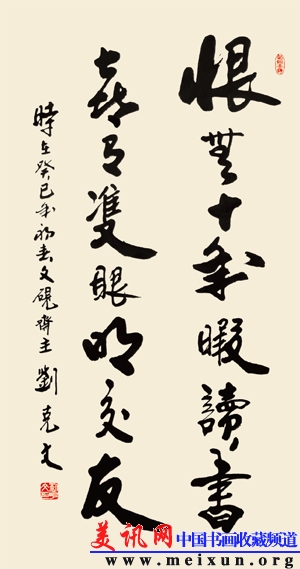 恨無十年暇讀書
喜有雙眼明交友
時在癸巳年初春文硯齋主劉克文
美讯网
中国书画收藏频道
www.meixun.org